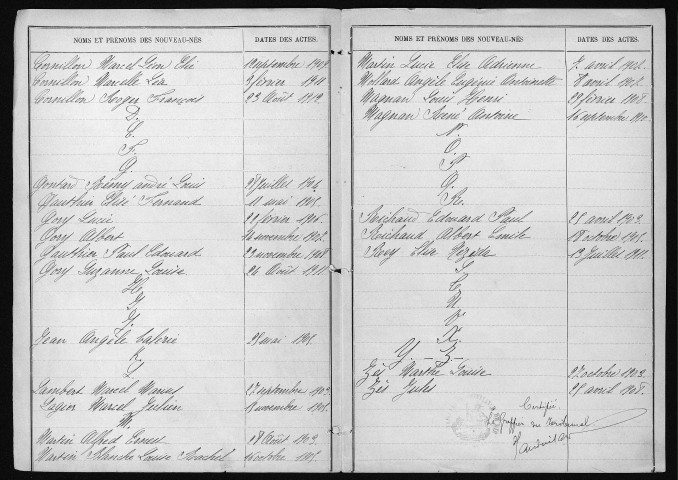 NOMS ET PRÉNOMS DES NOUVEAU-NÉS DATES DES ACTES.
Cornillon Marcel Léon Elie septembre 1909
Cornillon Marcelle Léa février 1911
Cornillon Roger François 23 Août 1912
D.
E.
F.
G.
Rémy André Louis Juillet 1904
Gauthier Elisé Fernand 11 mai 1905
Gory Lucie février 1906
Gory Albert novembre 1907
Gauthier Paul Edouard 23 novembre 1908
Gory Suzanne Louise 26 Août 1911
H.
I.
J.
Jean Angèle Valérie mai 1905
K.
L.
Lambert Marcel Marius 27 septembre 1903
Lagier Marcel Julien novembre 1905
M.
Martin Alfred Ernest Août 1903
Martin Blanche Louise Rachel octobre 1905
NOMS ET PRÉNOMS DES NOUVEAU-NÉS DATES DES ACTES.
Martin Lucie Elise Adrienne 7 avril 1908
Mollard Angèle Eugénie Antoinette 8 avril 1908
Magnan Louis Henri février 1908
Magnan René Antoine 16 septembre 1910
N.
O.
P.
Q.
R.
Reichaud Edouard Paul 25 avril 1903
Reichaud Albert Emile 18 octobre 1905
Rey Elise 13 Juillet 1911
S.
T.
U.
V.
X.
Y. - Z.
Marthe Louise 27 octobre 1903
Jules avril 1908
Certifié
Le Greffier du Tribunal